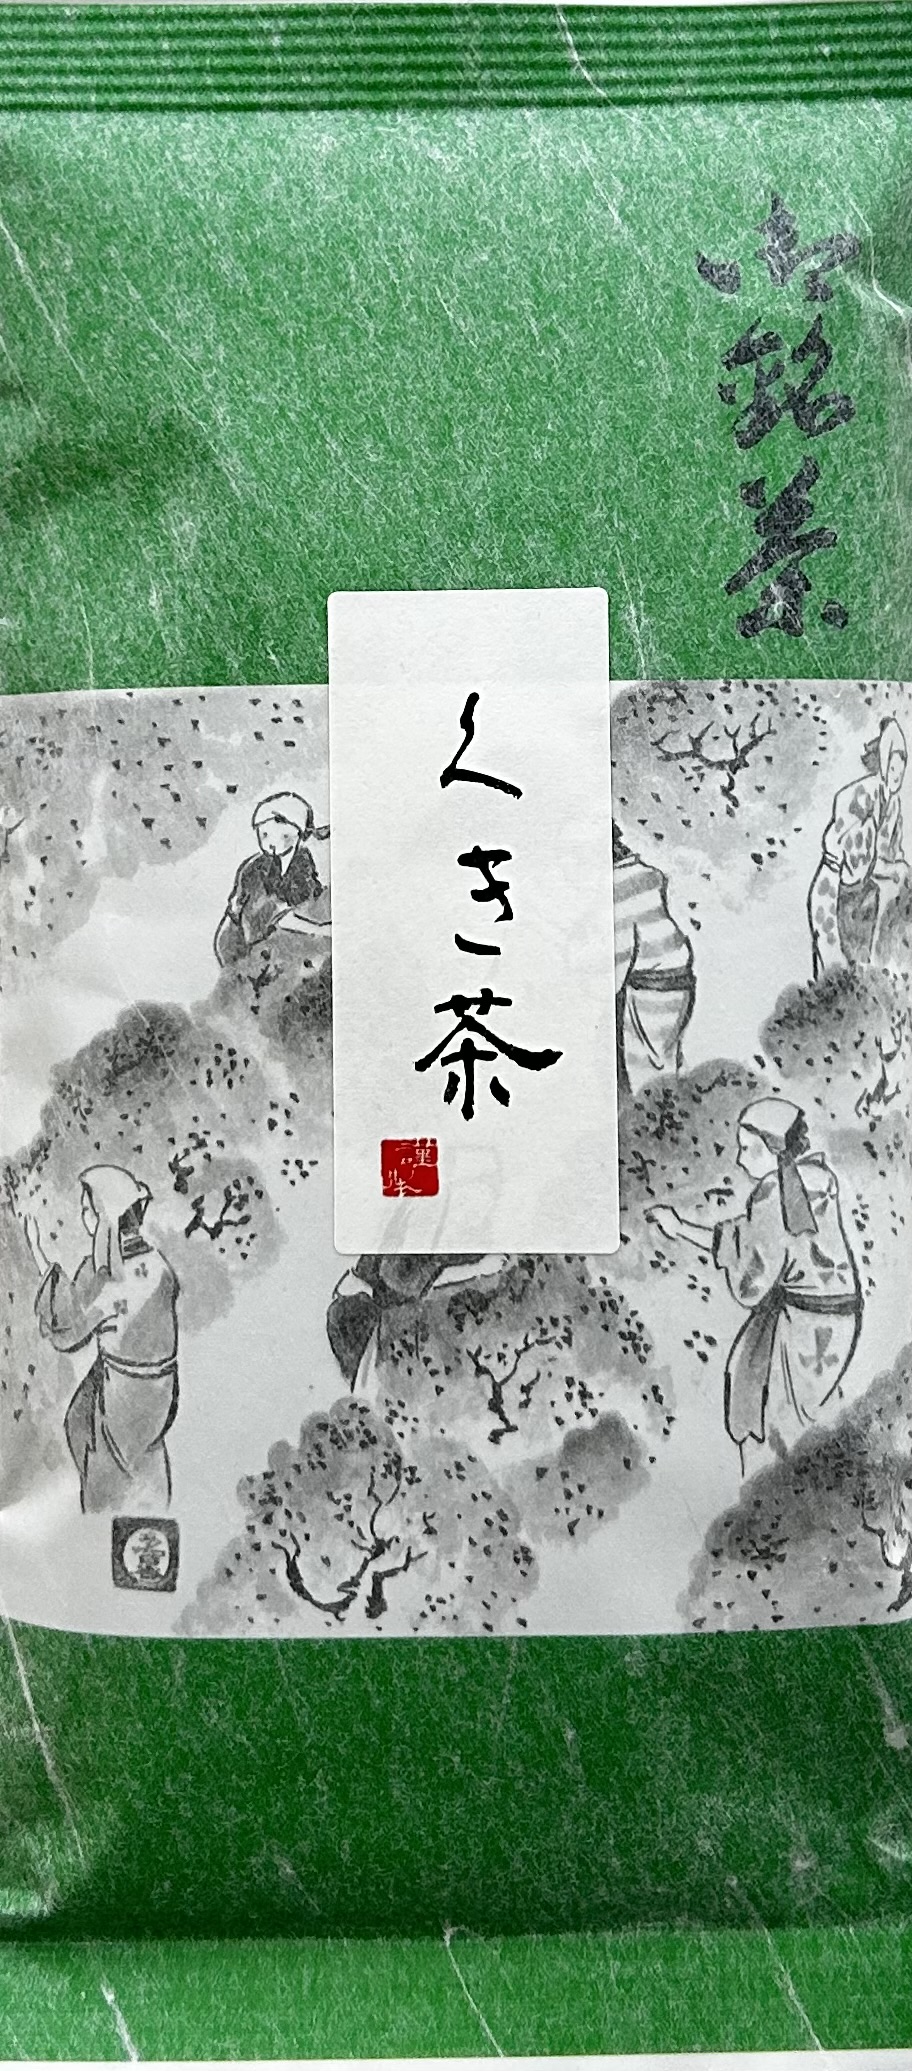 御銘茶
くき茶
謹製